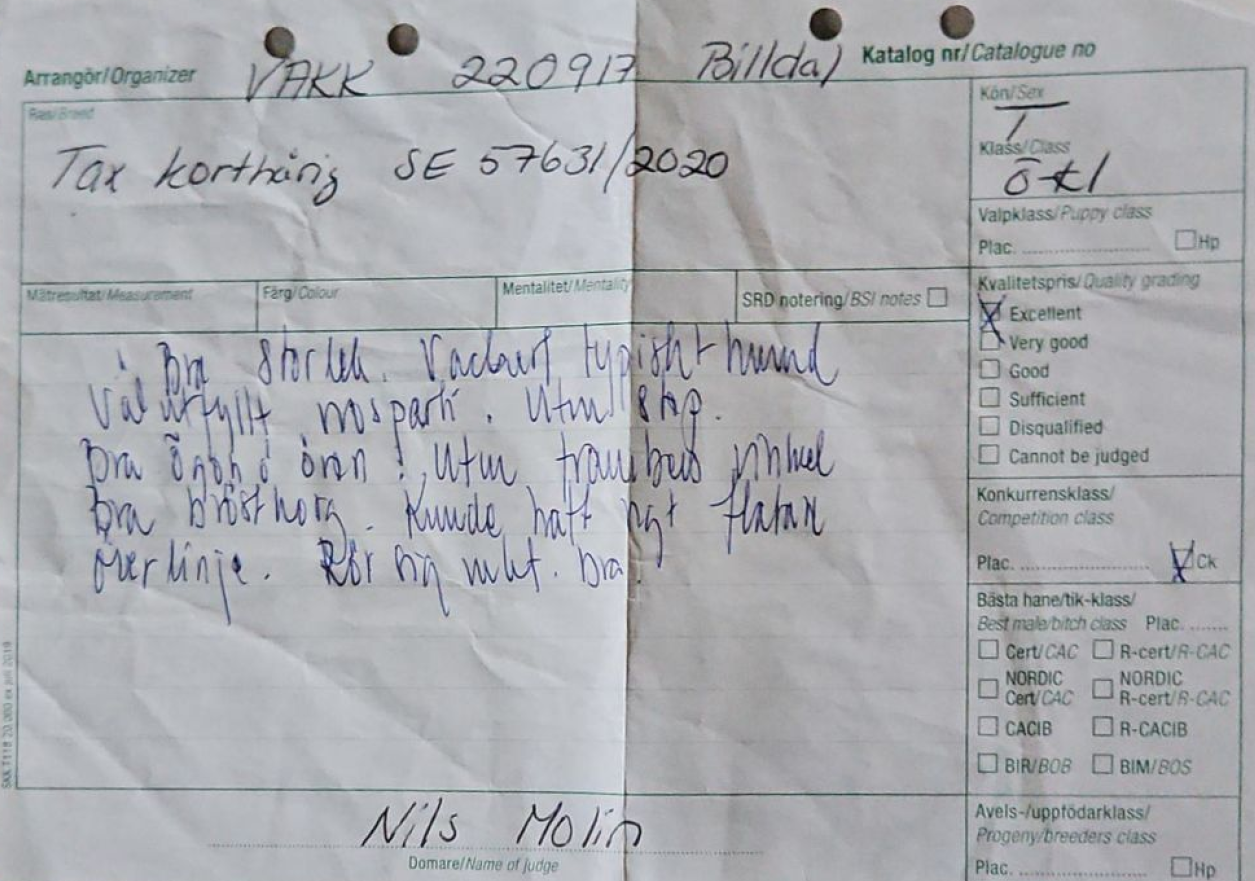 Arrangör/Organizer VÄKK 220917 Billdal Katalog nr/Catalogue no
Ras/Breed
Tax korthårig SE 57631/2020
Kön/Sex
T
Klass/Class
ökl
Valpklass/Puppy class
Plac. Hp
Mätresultat/Measurement Färg/Colour Mentalitet/Mentality SRD notering/BSI notes
Kvalitetspris/Quality grading
Excellent
Very good
Good
Sufficient
Disqualified
Cannot be judged
Bra storlek. typisk hund
Väl utfyllt nosparti. Utm
Bra ögon o öron. Utm
bra bröstkorg. Kunde haft ngt
överlinje. Rör sig mkt. bra.
Konkurrensklass/
Competition class
Plac. Ck
Bästa hane/tik-klass/
Best male/bitch class Plac.
Cert/CAC R-cert/R-CAC
NORDIC Cert/CAC NORDIC R-cert/R-CAC
CACIB R-CACIB
BIR/BOB BIM/BOS
Nils Molin
Domare/Name of judge
Avels-/uppfödarklass/
Progeny/breeders class
Plac. Hp